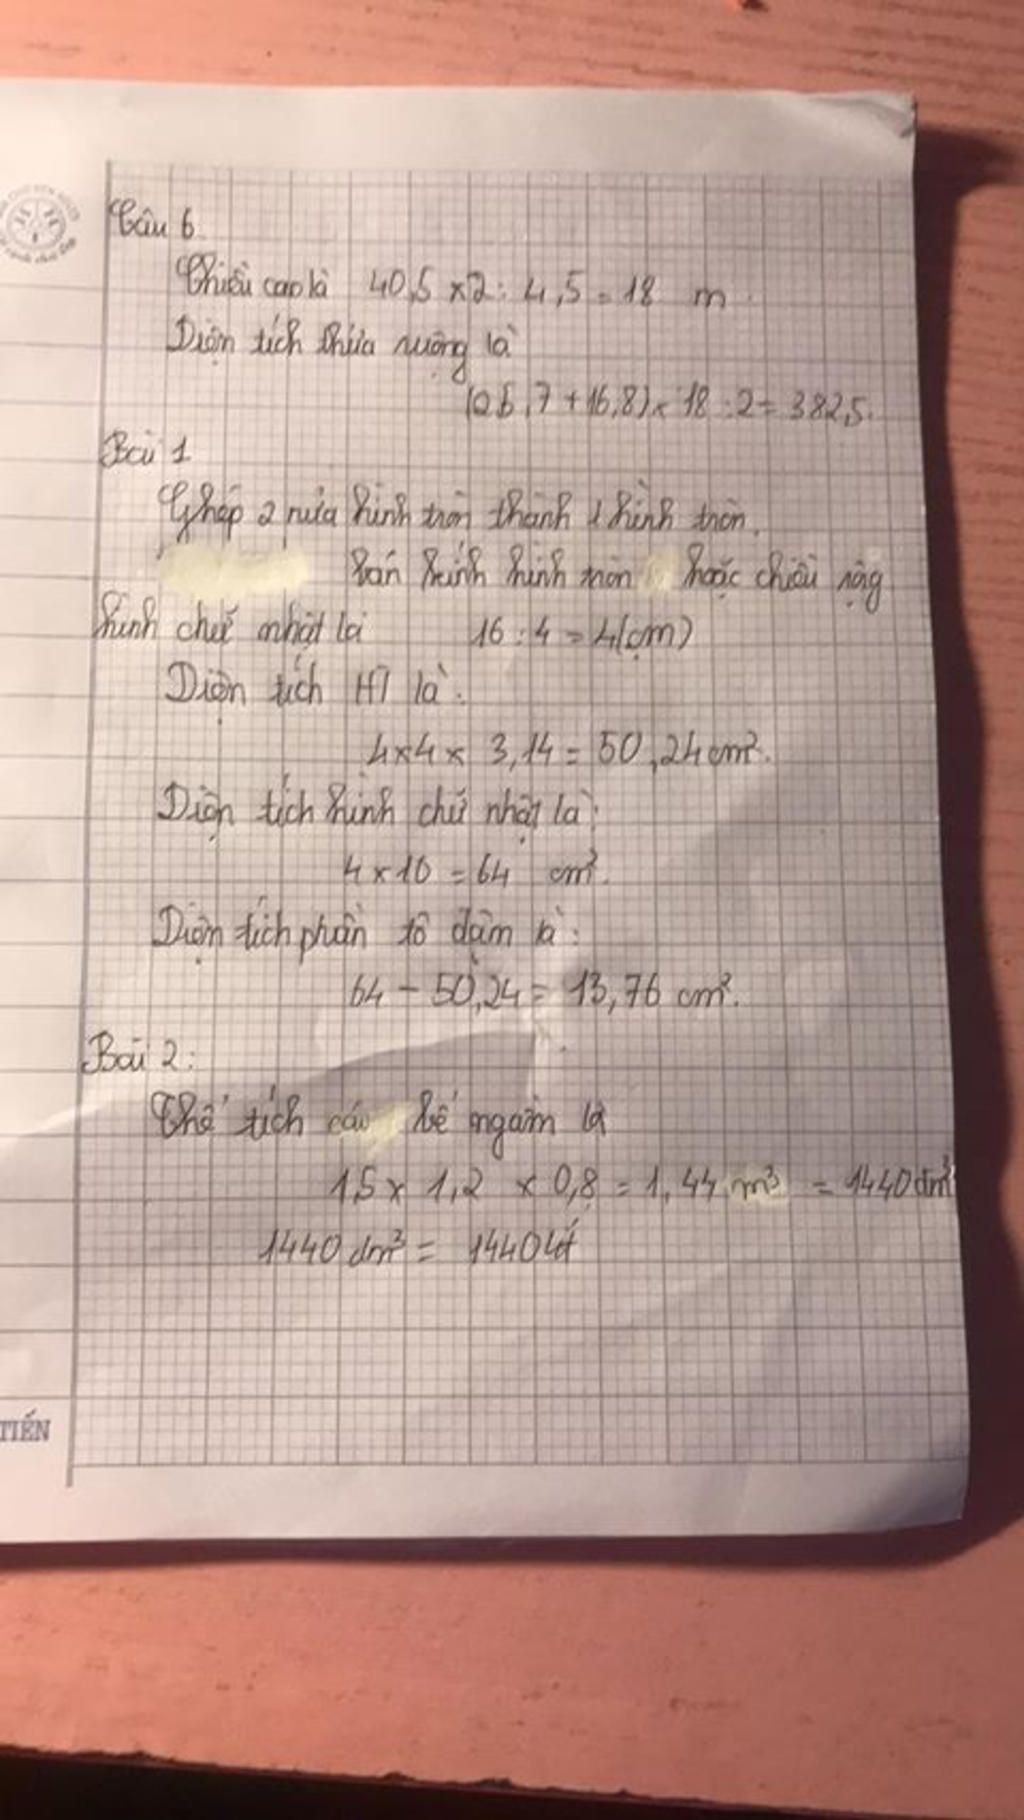 Câu 6
Chiều cao là 40,5 x 2 : 4,5 = 18 m
Diện tích thửa ruộng là
(25,7 + 16,8) x 18 : 2 = 382,5.
Bài 1
Ghép 2 nửa hình tròn thành 1 hình tròn.
bán kính hình tròn hoặc chiều rộng
hình chữ nhật là 16 : 4 = 4(cm)
Diện tích HT là :
4 x 4 x 3,14 = 50,24 cm².
Diện tích hình chữ nhật là :
4 x 16 = 64 cm².
Diện tích phần tô đậm là :
64 - 50,24 = 13,76 cm².
Bài 2 :
Thể tích cái bể ngầm là
1,5 x 1,2 x 0,8 = 1,44 m³ = 1440 dm³
1440 dm³ = 1440 lít
TIẾN